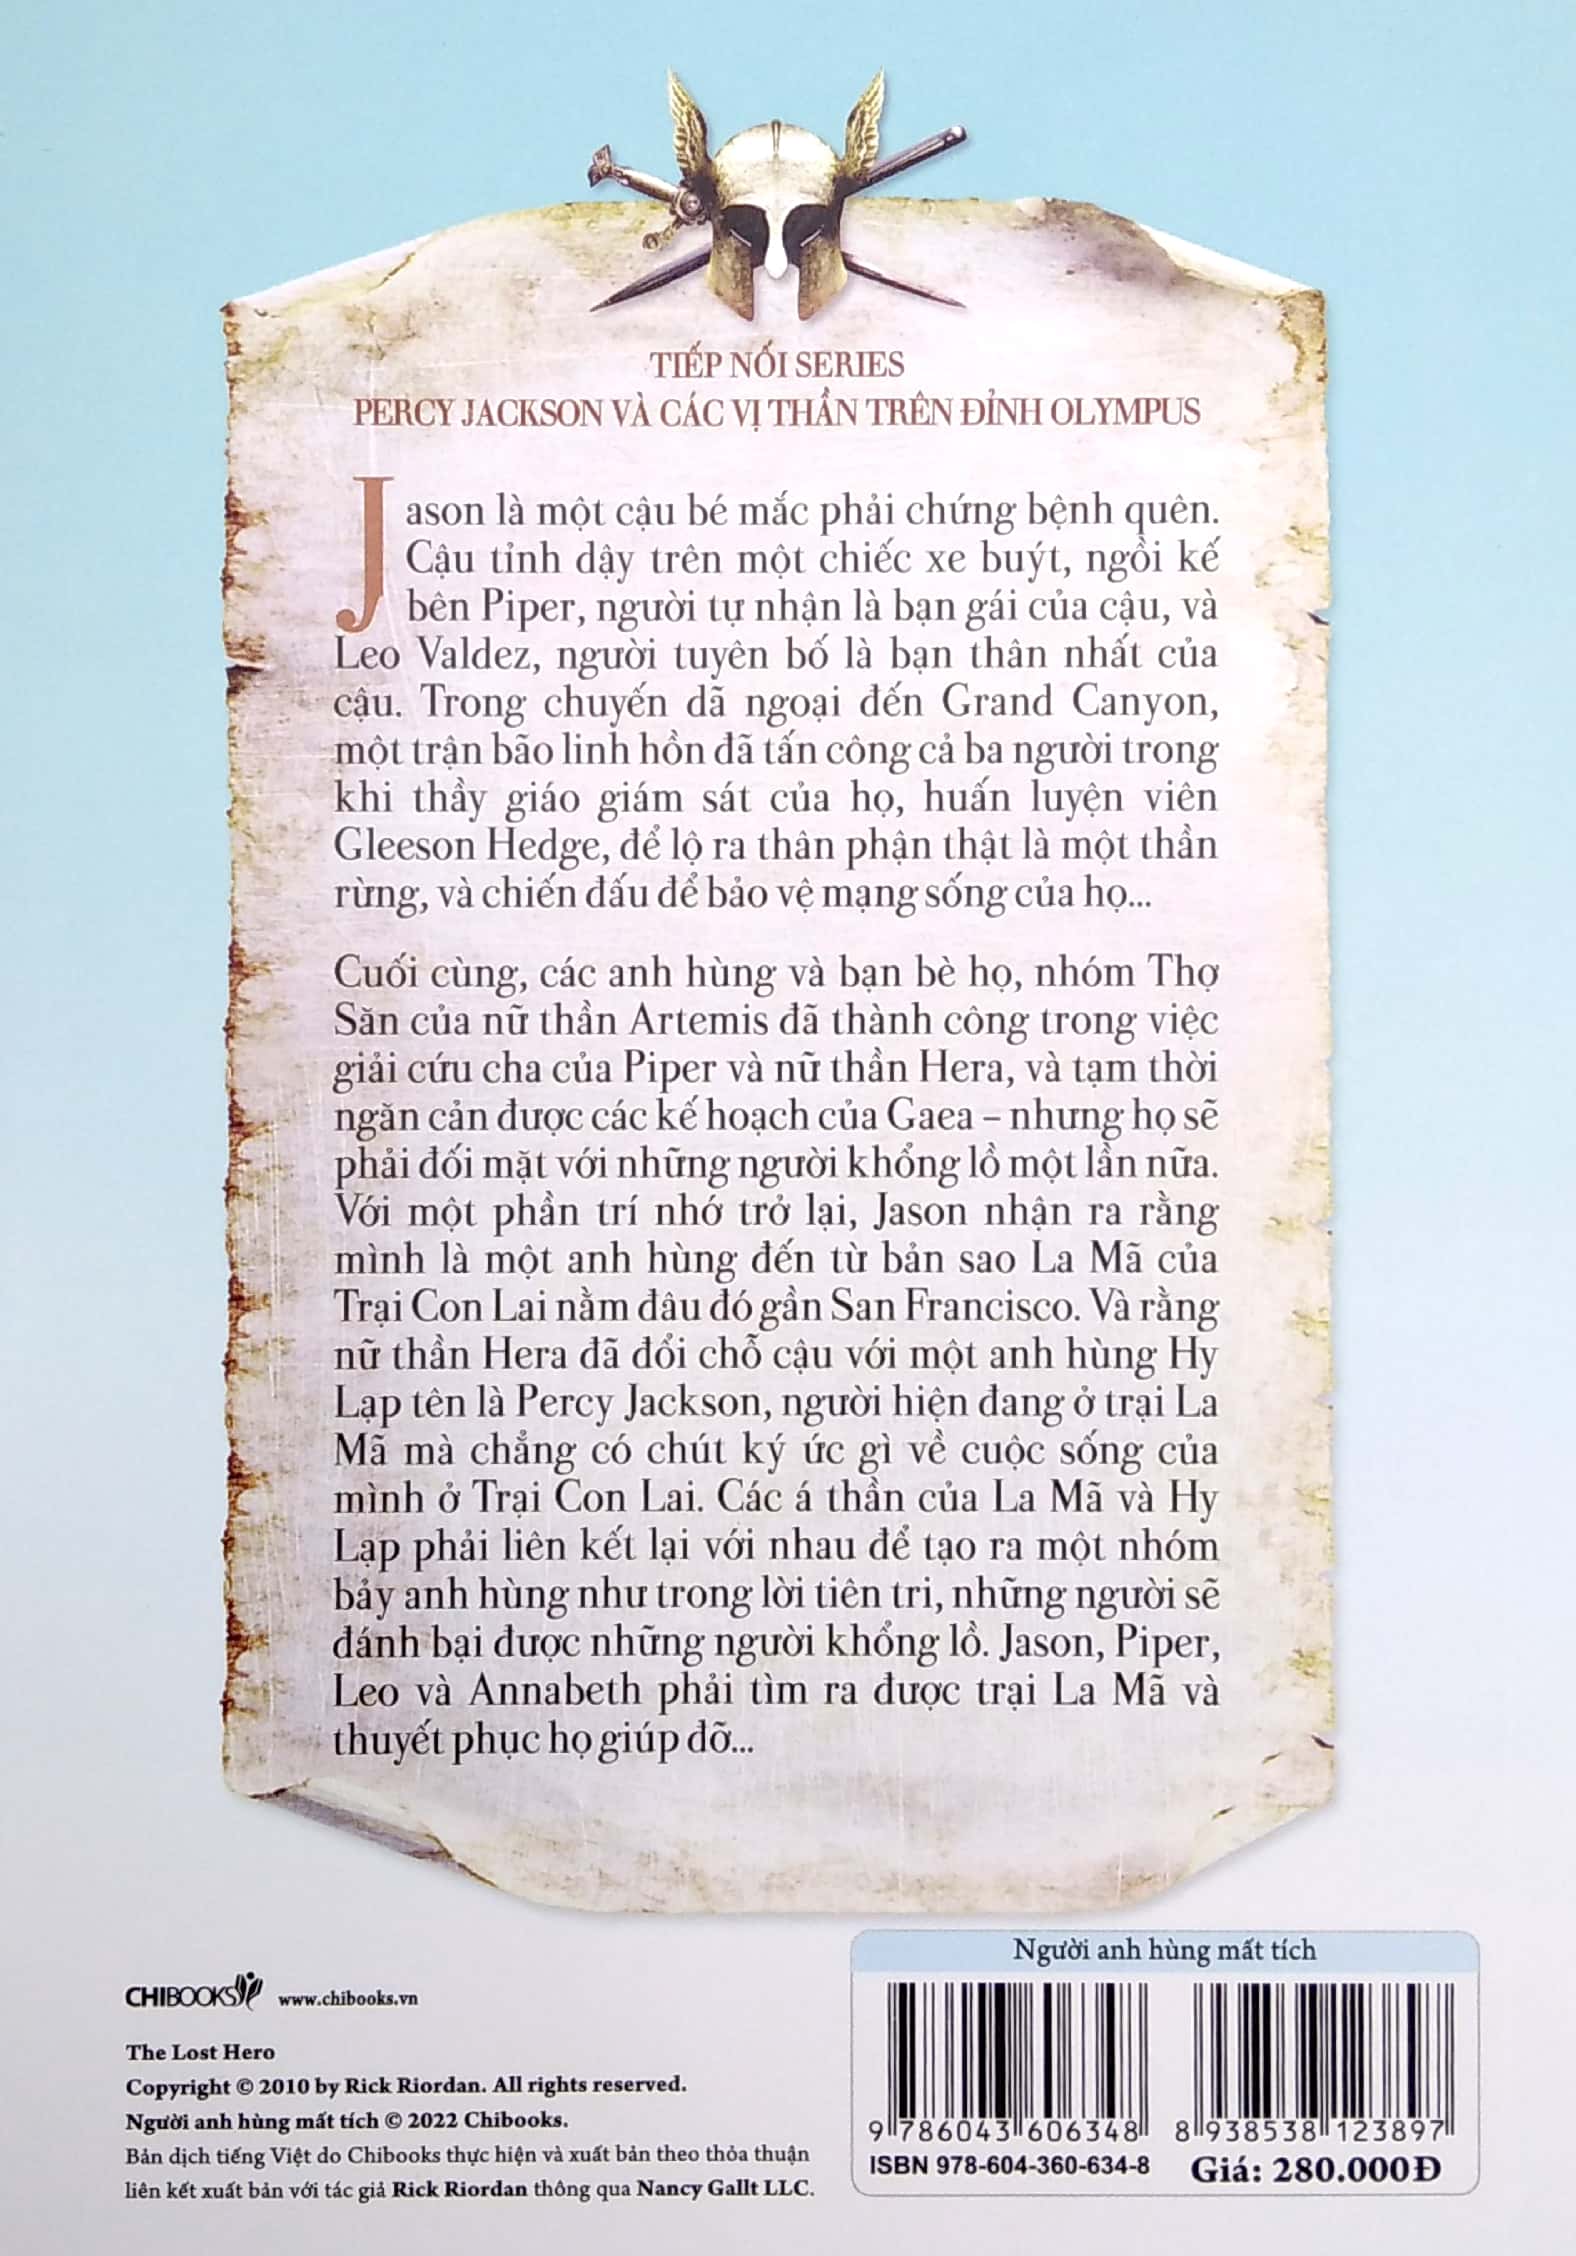 TIẾP NỐI SERIES
PERCY JACKSON VÀ CÁC VỊ THẦN TRÊN ĐỈNH OLYMPUS
Jason là một cậu bé mắc phải chứng bệnh quên.
Cậu tỉnh dậy trên một chiếc xe buýt, ngồi kế
bên Piper, người tự nhận là bạn gái của cậu, và
Leo Valdez, người tuyên bố là bạn thân nhất của
cậu. Trong chuyến dã ngoại đến Grand Canyon,
một trận bão linh hồn đã tấn công cả ba người trong
khi thầy giáo giám sát của họ, huấn luyện viên
Gleeson Hedge, để lộ ra thân phận thật là một thần
rừng, và chiến đấu để bảo vệ mạng sống của họ...
Cuối cùng, các anh hùng và bạn bè họ, nhóm Thợ
Săn của nữ thần Artemis đã thành công trong việc
giải cứu cha của Piper và nữ thần Hera, và tạm thời
ngăn cản được các kế hoạch của Gaea – nhưng họ sẽ
phải đối mặt với những người khổng lồ một lần nữa.
Với một phần trí nhớ trở lại, Jason nhận ra rằng
mình là một anh hùng đến từ bản sao La Mã của
Trại Con Lai nằm đâu đó gần San Francisco. Và rằng
nữ thần Hera đã đổi chỗ cậu với một anh hùng Hy
Lạp tên là Percy Jackson, người hiện đang ở trại La
Mã mà chẳng có chút ký ức gì về cuộc sống của
mình ở Trại Con Lai. Các á thần của La Mã và Hy
Lạp phải liên kết lại với nhau để tạo ra một nhóm
bảy anh hùng như trong lời tiên tri, những người sẽ
đánh bại được những người khổng lồ. Jason, Piper,
Leo và Annabeth phải tìm ra được trại La Mã và
thuyết phục họ giúp đỡ...
CHIBOOKS www.chibooks.vn
The Lost Hero
Copyright © 2010 by Rick Riordan. All rights reserved.
Người anh hùng mất tích © 2022 Chibooks.
Bản dịch tiếng Việt do Chibooks thực hiện và xuất bản theo thỏa thuận
liên kết xuất bản với tác giả Rick Riordan thông qua Nancy Gallt LLC.
Người anh hùng mất tích
9 786043 606348
ISBN 978-604-360-634-8
8 938538 123897
Giá: 280.000Đ